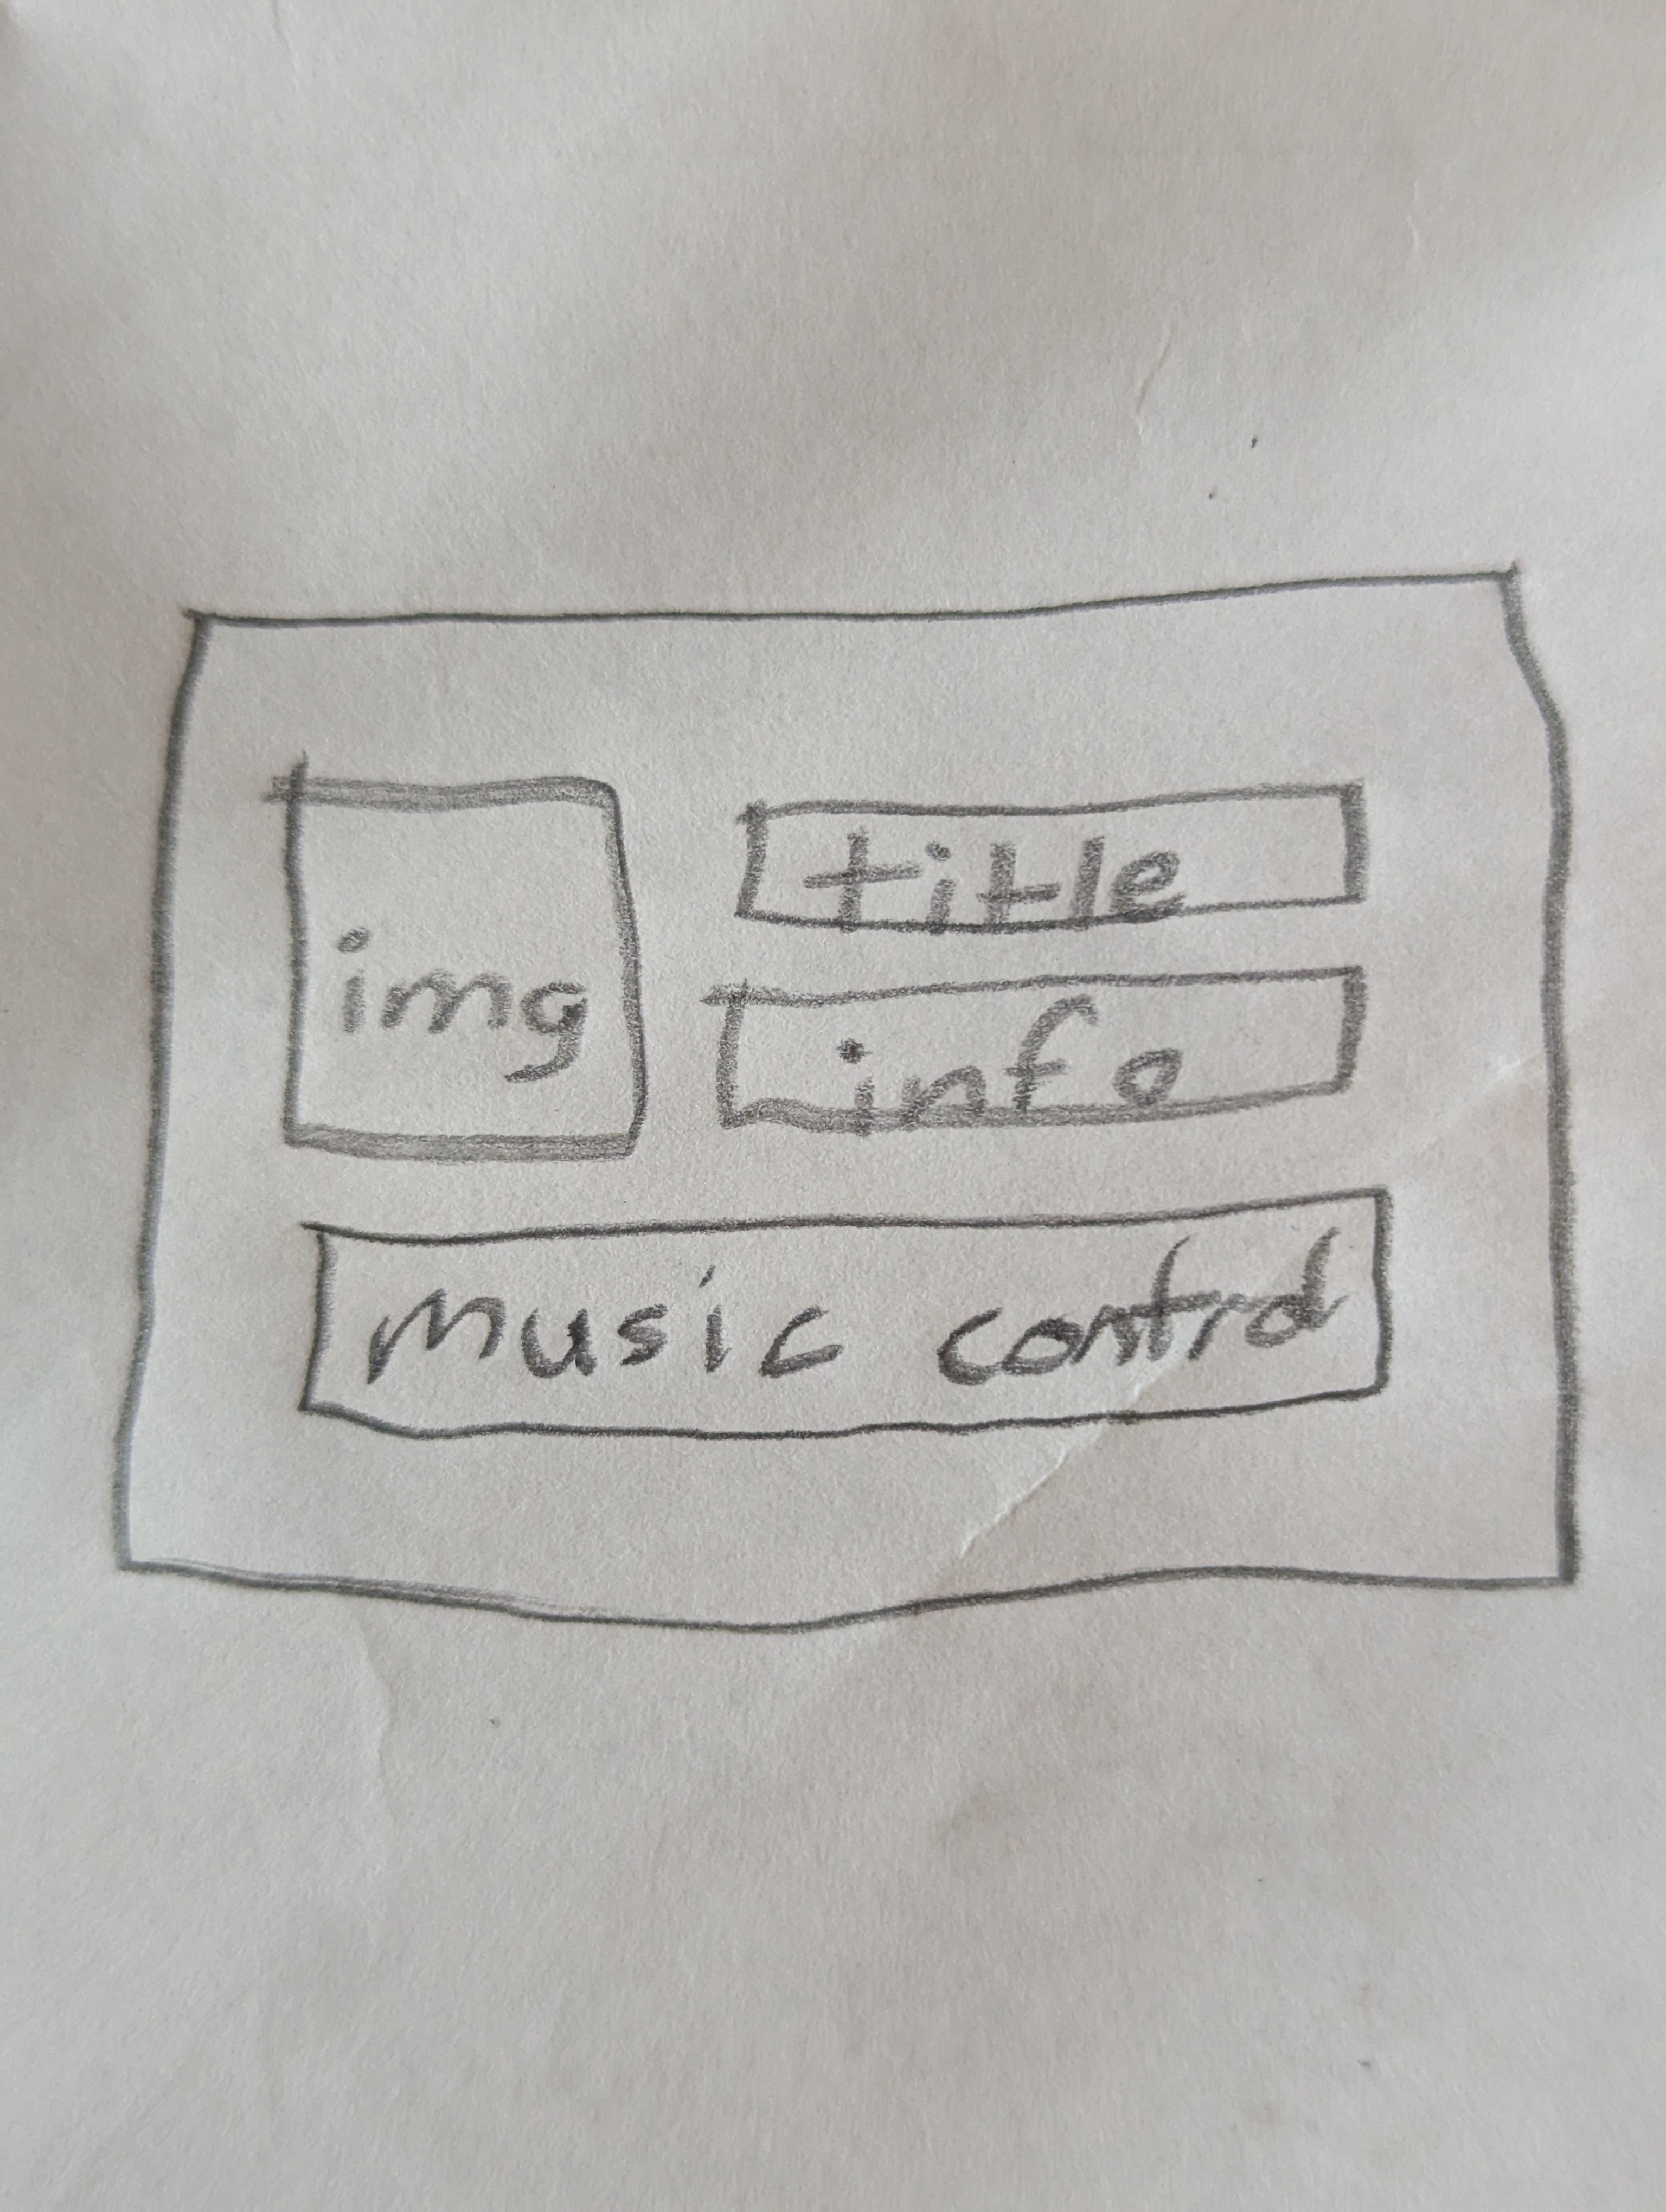 img
title
info
music control